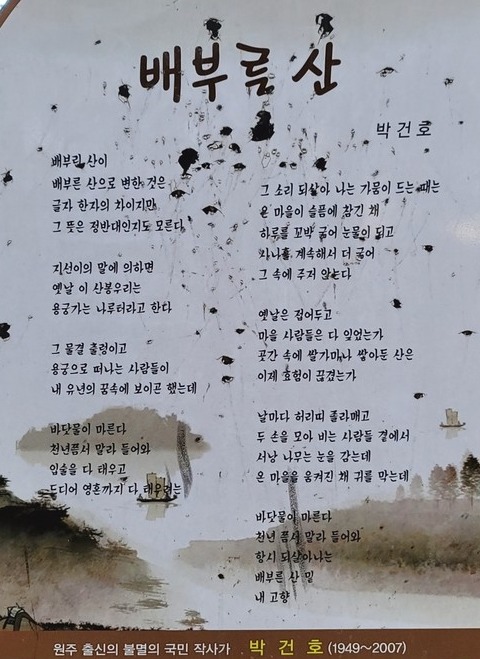 배부른 산
박건호
배부린 산이
배부른 산으로 변한 것은
글자 한자의 차이지만
그 뜻은 정반대인지도 모른다
지선이의 말에 의하면
옛날 이 산봉우리는
용궁가는 나루터라고 한다
그 물결 출렁이고
용궁으로 떠나는 사람들이
내 유년의 꿈속에 보이곤 했는데
바닷물이 마른다
천년쯤서 말라 들어와
입술을 다 태우고
드디어 영혼까지 다 태우려는
그 소리 되살아 나는 가뭄이 드는 때는
온 마을이 슬픔에 잠긴 채
하루를 꼬박 굶어 눈물이 되고
사나흘 계속해서 더 굶어
그 속에 주저 앉는다
옛날은 접어두고
마을 사람들은 다 잊었는가
곳간 속에 쌀가마니 쌓아둔 산은
이제 효험이 끊겼는가
날마다 허리띠 졸라매고
두 손을 모아 비는 사람들 곁에서
서낭 나무는 눈을 감는데
온 마을을 움켜진 채 귀를 막는데
바닷물이 마른다
천년 쯤서 말라 들어와
항시 되살아나는
배부른 산 밑
내 고향
원주 출신의 불멸의 국민 작사가 박 건 호 (1949~2007)